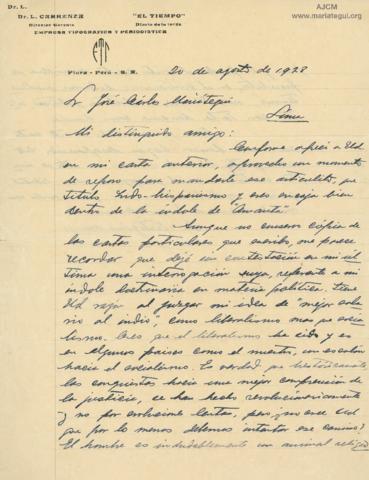 AJCM
www.mariategui.org
Dr. L.
Dr. L. CARRANZA
Director Gerente
"EL TIEMPO"
Diario de la tarde
EMPRESA TIPOGRAFICA Y PERIODISTICA
Piura - Perú - S. A.
20 de agosto de 1928
Sr José Carlos Mariátegui
Lima
Mi distinguido amigo:
Conforme ofrecí a Ud
en mi carta anterior, aprovecho un momento
de reposo para mandarle ese articulito, que
titulo Indo-hispanismo y creo encaja bien
dentro de la índole de "Amauta"
Aunque no conservo copia de
las cartas particulares que escribo, me parece
recordar que dejé sin contestación en mi úl
tima una interrogación suya, referente a mi
índole en materia política. Tiene
Ud razón al juzgar mi idea de "mejor
al indio", como liberalismo mas que socia
lismo. Creo que el liberalismo ha sido y es
en algunos países como el nuestro, un escalón
hacia el socialismo. Es verdad que históricamente,
las conquistas hacia una mejor comprensión de
la justicia, se han hecho revolucionariamente
y no por evoluciones lentas, pero ¿no cree Ud
que por lo menos debemos intentar ese camino?
El hombre es indudablemente un animal